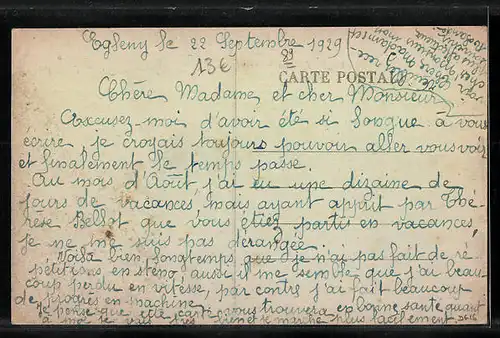 Egleny le 22 Septembre 1929
13€
CARTE POSTALE
Chère Madame et cher Monsieur
Excusez-moi d'avoir été si longue à vous
écrire, je croyais toujours pouvoir aller vous voir
et finalement le temps passe.
Au mois d'Août j'ai eu une dizaine de
jours de vacances mais ayant apprit par Thé-
rèse Bellot que vous étiez partis en vacances,
je ne me suis pas dérangée
Voilà bien longtemps que je n'ai pas fait de ré-
pétitions en sténo, aussi il me semble que j'ai beau-
coup perdu en vitesse, par contre j'ai fait beaucoup
de progrès en machine
Je pense que cette carte vous trouvera en bonne santé quant
à moi je vais très bien et je marche plus facilement